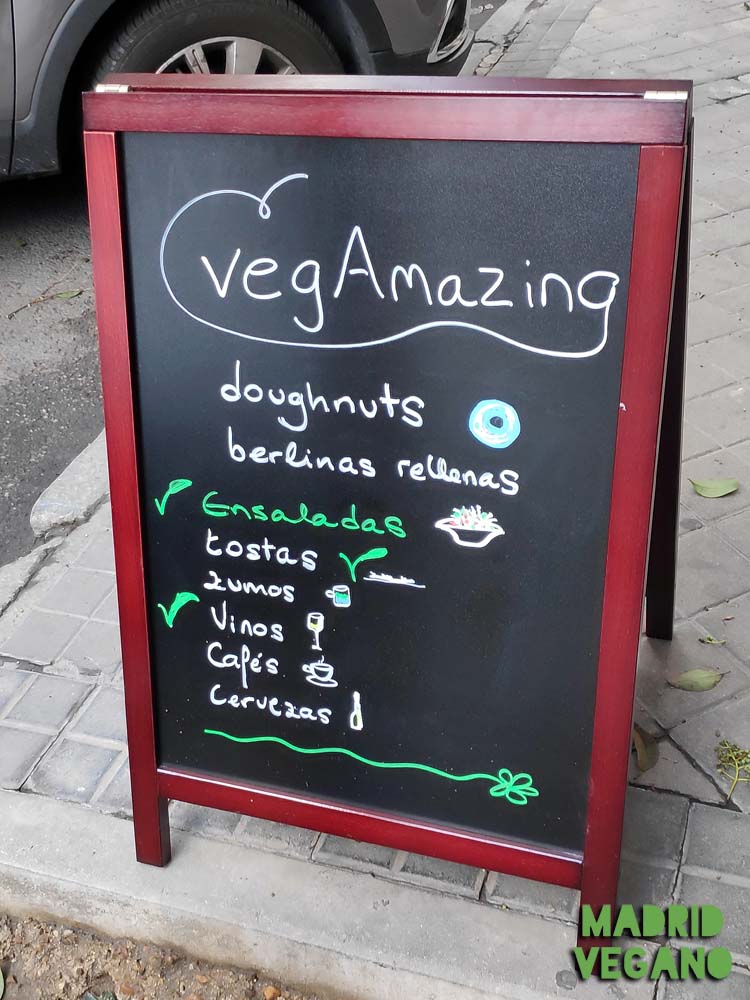 vegAmazing
doughnuts
berlinas rellenas
Ensaladas
tostas
zumos
Vinos
Cafés
Cervezas
MADRID
VEGANO